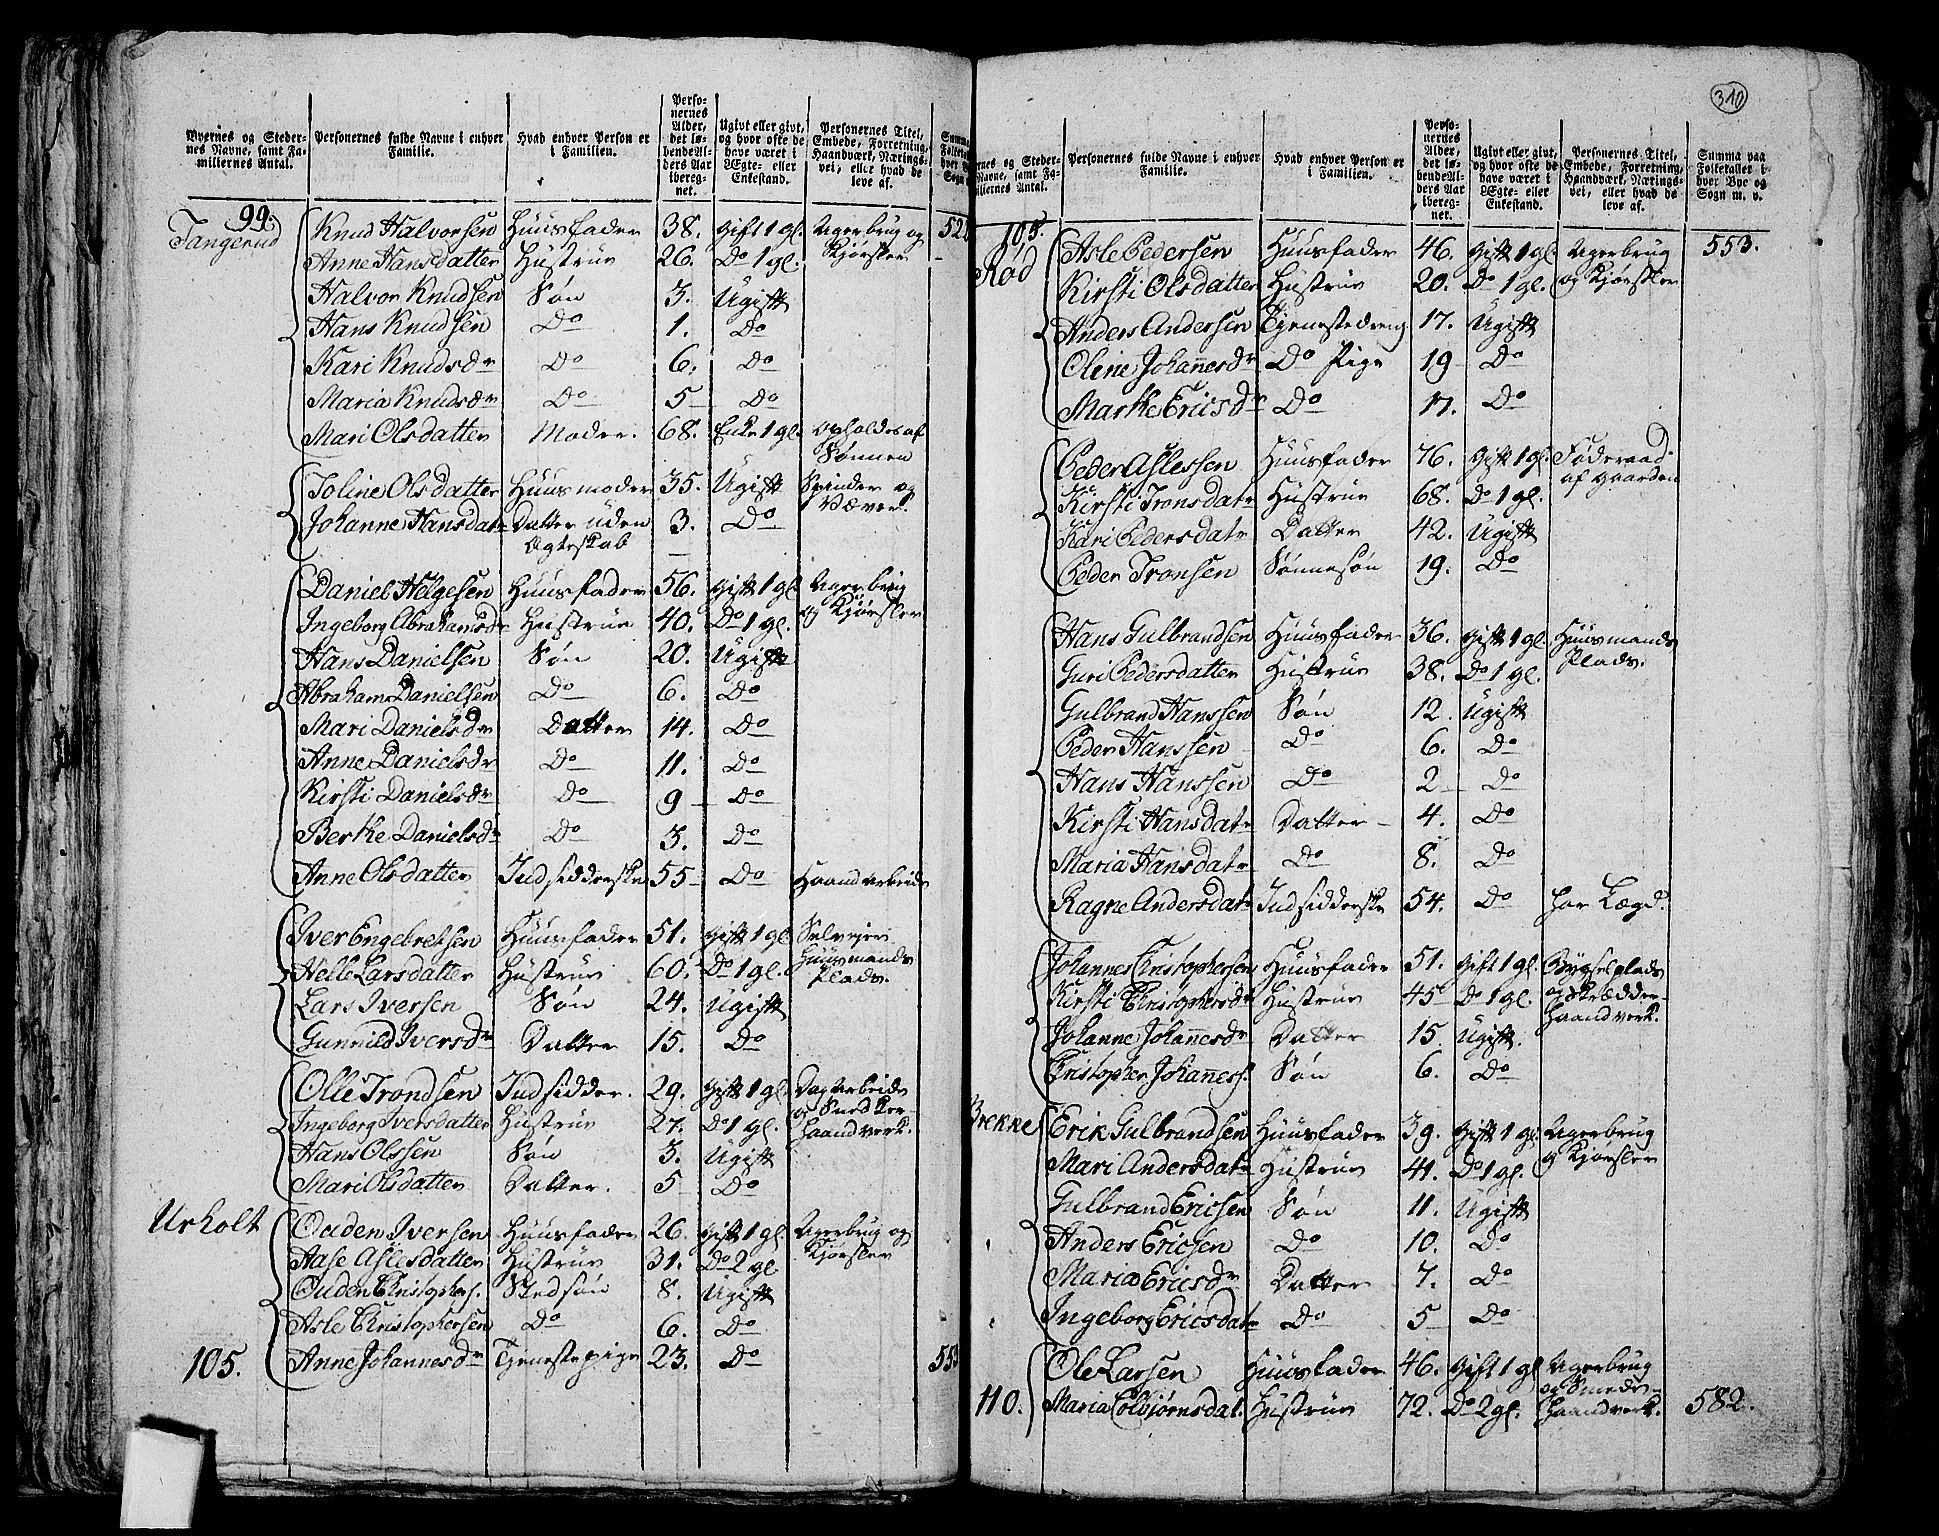 310
Byernes og Stedernes Navne, samt Familiernes Antal. | Personernes fulde Navne i enhver Familie. | Hvad enhver Person er i Familien. | Personernes Alder, det løbende Alders Aar iberegnet. | Ugivt eller givt, og hvor ofte de have været i Egte- eller Enkestand. | Personernes Titel, Embede, Forretning, Haandværk, Næringsvei, eller hvad de leve af.
99. Knud Halvorsen Huusfader 38. Gift 1 gl. Agerbrug og 52
Tangerud Anne Hansdatter Hustrue 26. Do 1 gl. Kjørsler
Halvor Knudsen Søn 3. Ugift
Hans Knudsen Do 1. Do
Kari Knudsdr Do 6. Do
Maria Knudsdr Do 5 Do
Mari Olsdatter Moder. 68. Enke 1 gl. opholdes af
Sønnen
Joline Olsdatter Huusmoder 35. Ugift Spinder og
Johanne Hansdatr Datter uden 3. Do Væver.
Ægteskab
Daniel Helgesen Huusfader 56. Gift 1 gl. Agerbrug
Ingeborg Abrahamsdr Hustrue 40. Do 1 gl. og Kjørsler
Hans Danielsen Søn 20. Ugift
Abraham Danielsen Do 6. Do
Mari Danielsdr Datter 14. Do
Anne Danielsdr Do 11. Do
Kirsti Danielsdr Do 9 Do
Berthe Danielsdr Do 3. Do
Anne Olsdatter Indsidderske 55 Do Haandarbeide
Iver Engebretsen Huusfader 51. Gift 1 gl. Selveier
Helle Larsdatter Hustrue 60. Do 1 gl. Huusmands
Lars Iversen Søn 24. Ugift Plads.
Gunnild Iversdr Datter 15. Do
Olle Trondsen Indsidder. 29. Gift 1 gl. Dagarbeide
Ingeborg Iversdatter Hustrue 27. Do 1 gl. og Snedker-
Hans Olssen Søn 3. Ugift haandverk.
Mari Olsdatter Datter. 5 Do
Urholt Ouden Iversen Huusfader 26. Gift 1 gl. Agerbrug og
Aase Aslesdatter Hustrue 31. Do 2 gl Kjørsler
Ouden Christophers. Stedsøn 8. Ugift
Asle Christophersen Do 6. Do
105. Anne Johannesdr Tjenestepige 23. Do 553
Byernes og Stedernes Navne, samt Familiernes Antal. | Personernes fulde Navne i enhver Familie. | Hvad enhver Person er i Familien. | Personernes Alder, det løbende Alders Aar iberegnet. | Ugivt eller givt, og hvor ofte de have været i Egte- eller Enkestand. | Personernes Titel, Embede, Forretning, Haandværk, Næringsvei, eller hvad de leve af. | Summa paa Folketallet i hver Bye og Sogn m. v.
105. Asle Pedersen Huusfader 46. Gift 1 gl. Agerbrug 553.
Rød Kirsti Olsdatter Hustrue 20. Do 1 gl. og Kjørsler
Anders Andersen Tjenestedreng 17. Ugift
Oline Johannesdr Do Pige 19 Do
Marthe Ericsdr Do 17. Do
Peder Aslessen Huusfader 76. Gift 1 gl. Føderaad
Kirsti Tronsdatr Hustrue 68. Do 1 gl. af Gaarden
Kari Pedersdatr Datter 42. Ugift
Peder Tronsen Sønnesøn 19. Do
Hans Gulbrandsen Huusfader 36. Gift 1 gl. Huusmands
Guri Pedersdatter Hustrue 38. Do 1 gl. Plads.
Gulbrand Hanssen Søn 12. Ugift
Peder Hanssen Do 6. Do
Hans Hanssen Do 2 Do
Kirsti Hansdatr Datter 4. Do
Maria Hansdatr Do 8. Do
Ragne Andersdatr Indsidderske 54. Do har Lægd.
Johannes Christophersen Huusfader 51. Gift 1 gl. Bygselplads
Kirsti Christophersdr Hustrue 45 Do 1 gl. og Skrædder-
Johanne Johannesdr Datter 15 Ugift. haandverk.
Christopher Johanness. Søn 6. Do
Brekke Erik Gulbrandsen Huusfader 39. Gift 1 gl. Agerbrug
Mari Andersdatr Hustrue 41. Do 1 gl. og Kjørsler
Gulbrand Ericsen Søn 11. Ugift
Anders Ericsen Do 10. Do
Maria Ericsdr Datter 7. Do
Ingeborg Ericsdatr Do 5 Do
Ole Larsen Huusfader 46. Gift 1 gl Agerbrug
og Smede-
110. Maria Colbjørnsdat. Hustrue 72. Do 2 gl. haandverk. 582.